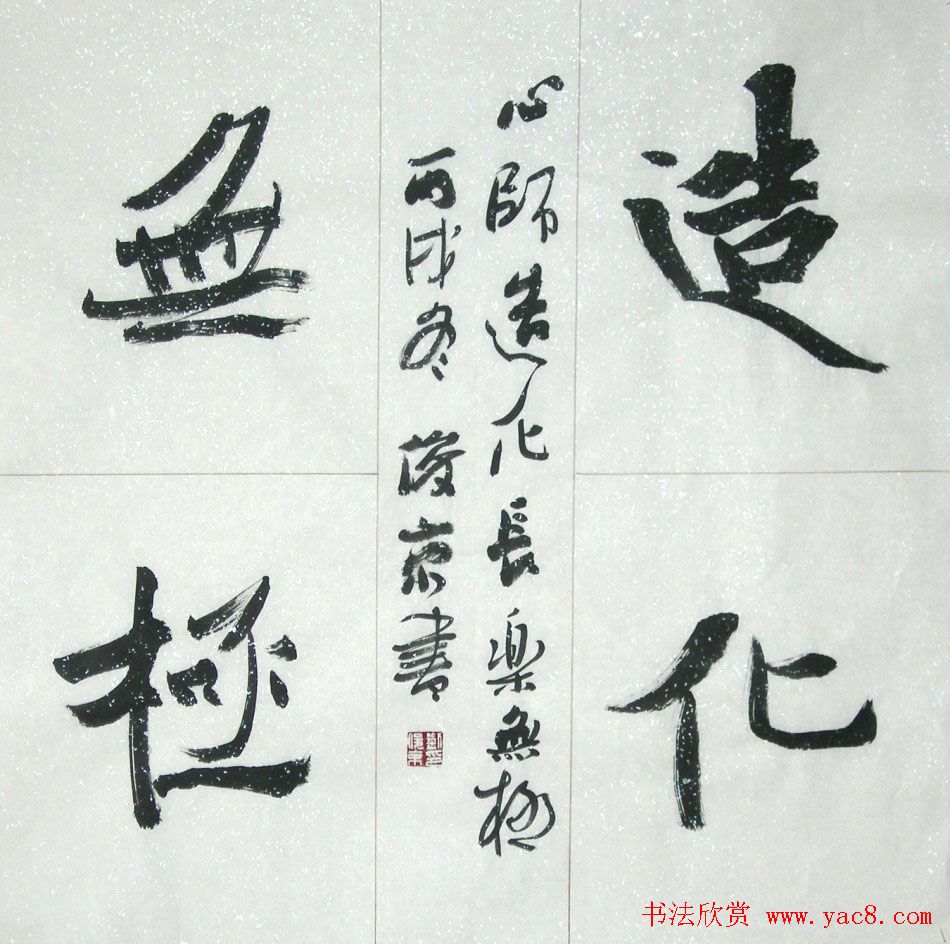 造化
心師造化長樂無極
丙戌冬 俊京書
無極
书法欣赏 www.yac8.com